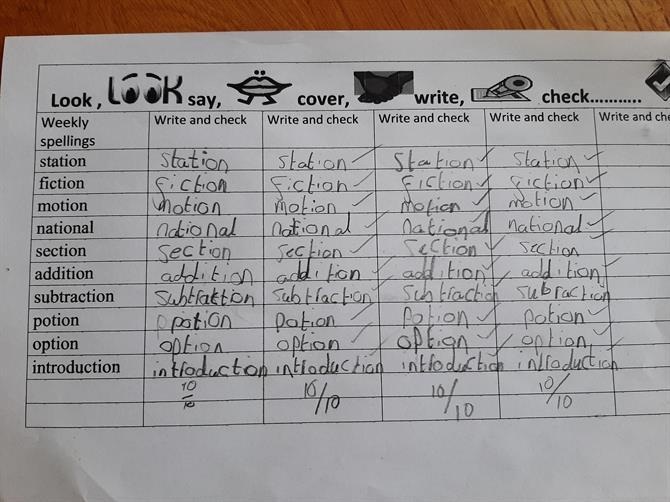 Look , LOOK say, cover, write, check...........
Weekly spellings Write and check Write and check Write and check Write and check Write and che
station station station station station
fiction fiction fiction fiction fiction
motion motion motion motion motion
national national national national national
section section section section section
addition addition addition addition addition
subtraction subtraktion subtraction subtraction subraction
potion potion potion potion potion
option option option option option
introduction introduction introduction introduction introduction
10/10 10/10 10/10 10/10